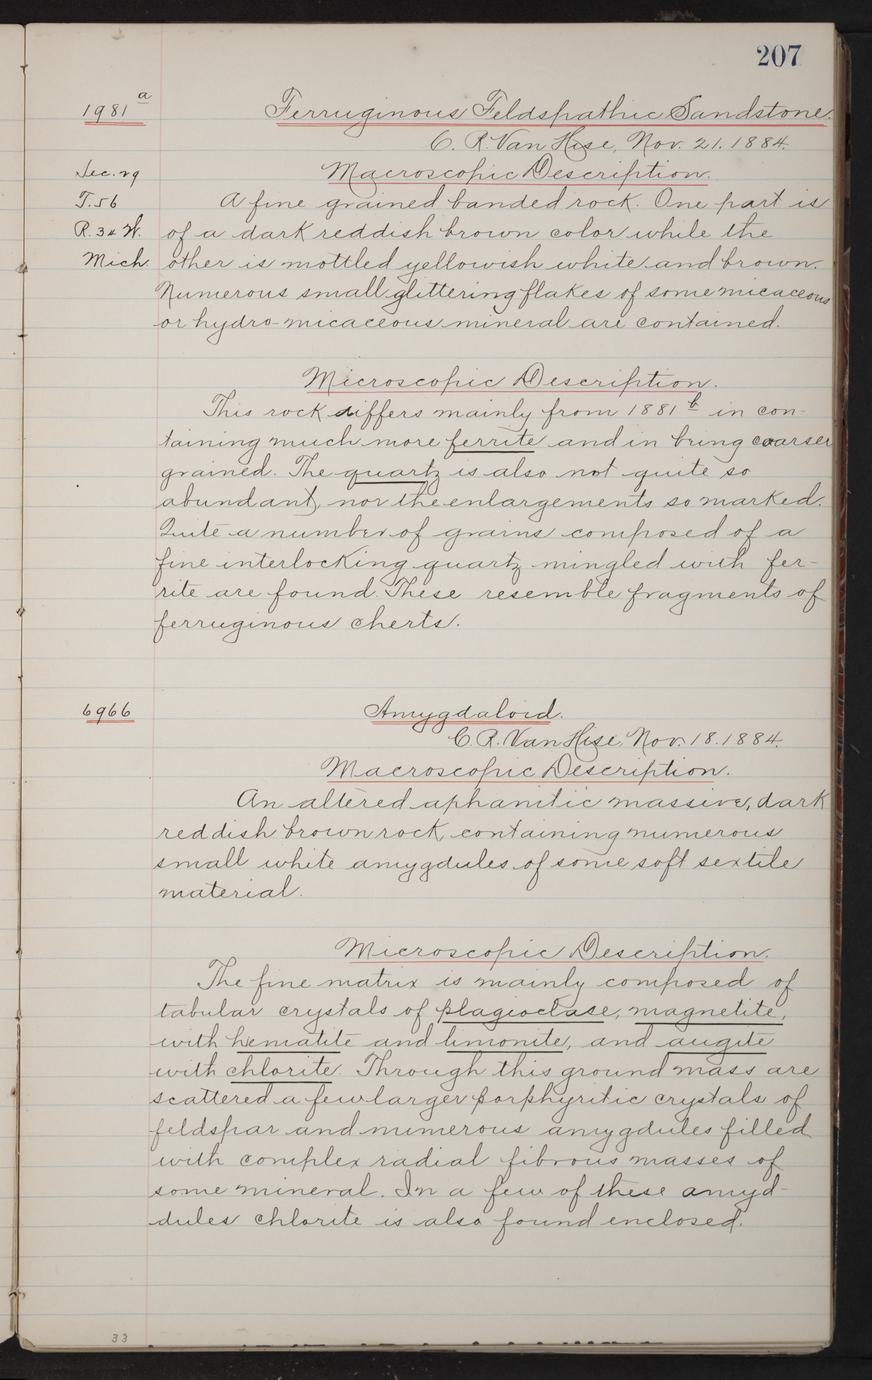 207
1981 a Ferruginous Feldspathic Sandstone.
C. R. Van Hise, Nov. 21. 1884.
Sec. 29 Macroscopic Description.
T. 56 A fine grained banded rock. One part is
R. 34 W. of a dark reddish brown color while the
Mich. other is mottled yellowish white and brown.
Numerous small glittering flakes of some micaceous
or hydro-micaceous mineral are contained.
Microscopic Description.
This rock differs mainly from 1881 b in con-
taining much more ferrite and in being coarser
grained. The quartz is also not quite so
abundant, nor the enlargements so marked.
Quite a number of grains composed of a
fine interlocking quartz mingled with fer-
rite are found. These resemble fragments of
ferruginous cherts.
6966 Amygdaloid.
C. R. Van Hise, Nov. 18. 1884.
Macroscopic Description.
An altered aphanitic massive, dark
reddish brown rock, containing numerous
small white amygdules of some soft sextile
material.
Microscopic Description.
The fine matrix is mainly composed of
tabular crystals of plagioclase, magnetite,
with hematite and limonite, and augite
with chlorite. Through this ground mass are
scattered a few larger porphyritic crystals of
feldspar and numerous amygdules filled
with complex radial fibrous masses of
some mineral. In a few of these amyd-
dules chlorite is also found enclosed.
33